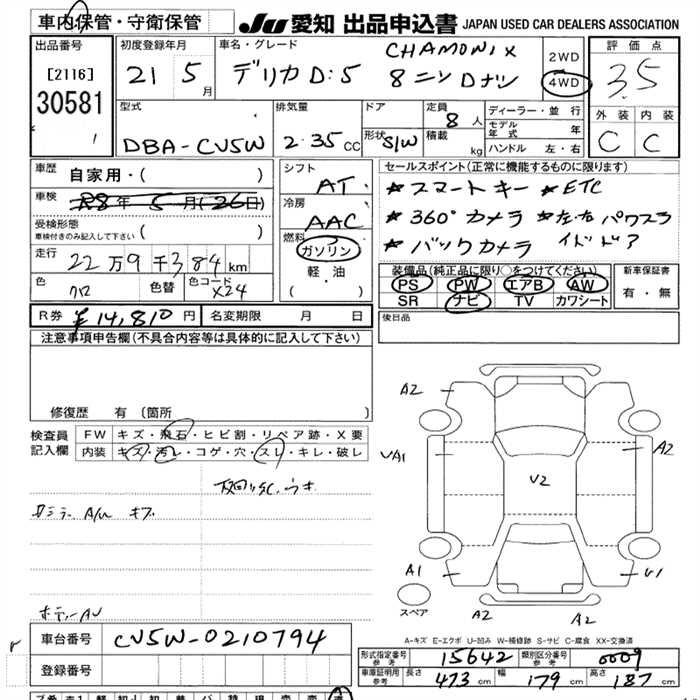 車内保管・守衛保管 JU 愛知 出品申込書 JAPAN USED CAR DEALERS ASSOCIATION
出品番号 初度登録年月 車名・グレード CHAMONIX 2WD 評価点
[2116] 21 5月 デリカ D:5 8ニン Dナシ 4WD 3.5
30581
型式 排気量 ドア 定員 ディーラー・並行 外装 内装
1 DBA-CV5W 2.35cc 形状 S/W 8人 モデル年式 年 C C
積載 kg ハンドル 左・右
車歴 自家用・( ) シフト AT セールスポイント(正常に機能するものに限ります)
車検 R8年 5月(26日) 冷房 AAC ★スマートキー ★ETC
受検形態 ★360°カメラ ★左右 パワスラ
車検付きのみ記入して下さい ( ) 燃料 ガソリン ★バックカメラ
走行 22万9千384km 軽・油
装備品(純正品に限り○をつけてください) 新車保証書
色 クロ 色替 色コード X24 ( ) PS PW エアB AW 有・無
SR ナビ TV カワシート
R券 ¥14,810円 名変期限 月 日 後日品
注意事項申告欄(不具合内容等は具体的に記入して下さい)
修復歴 有 (箇所 )
検査員記入欄 FW キズ・飛石・ヒビ割・リペア跡・X要
内装 キズ・汚レ・コゲ・穴・スレ・キレ・破レ
A2
A2
UA1
A2
V2
A1
U1
スペア
A2
A2
ボディーAU
A-キズ E-エクボ U-凹み W-補修跡 S-サビ C-腐食 XX-交換済
車台番号 CV5W-0210794
登録番号
形式指定番号 参考 15642 類別区分番号 参考 0009
車庫証明用 参考 長さ 473cm 幅 179cm 高さ 187cm